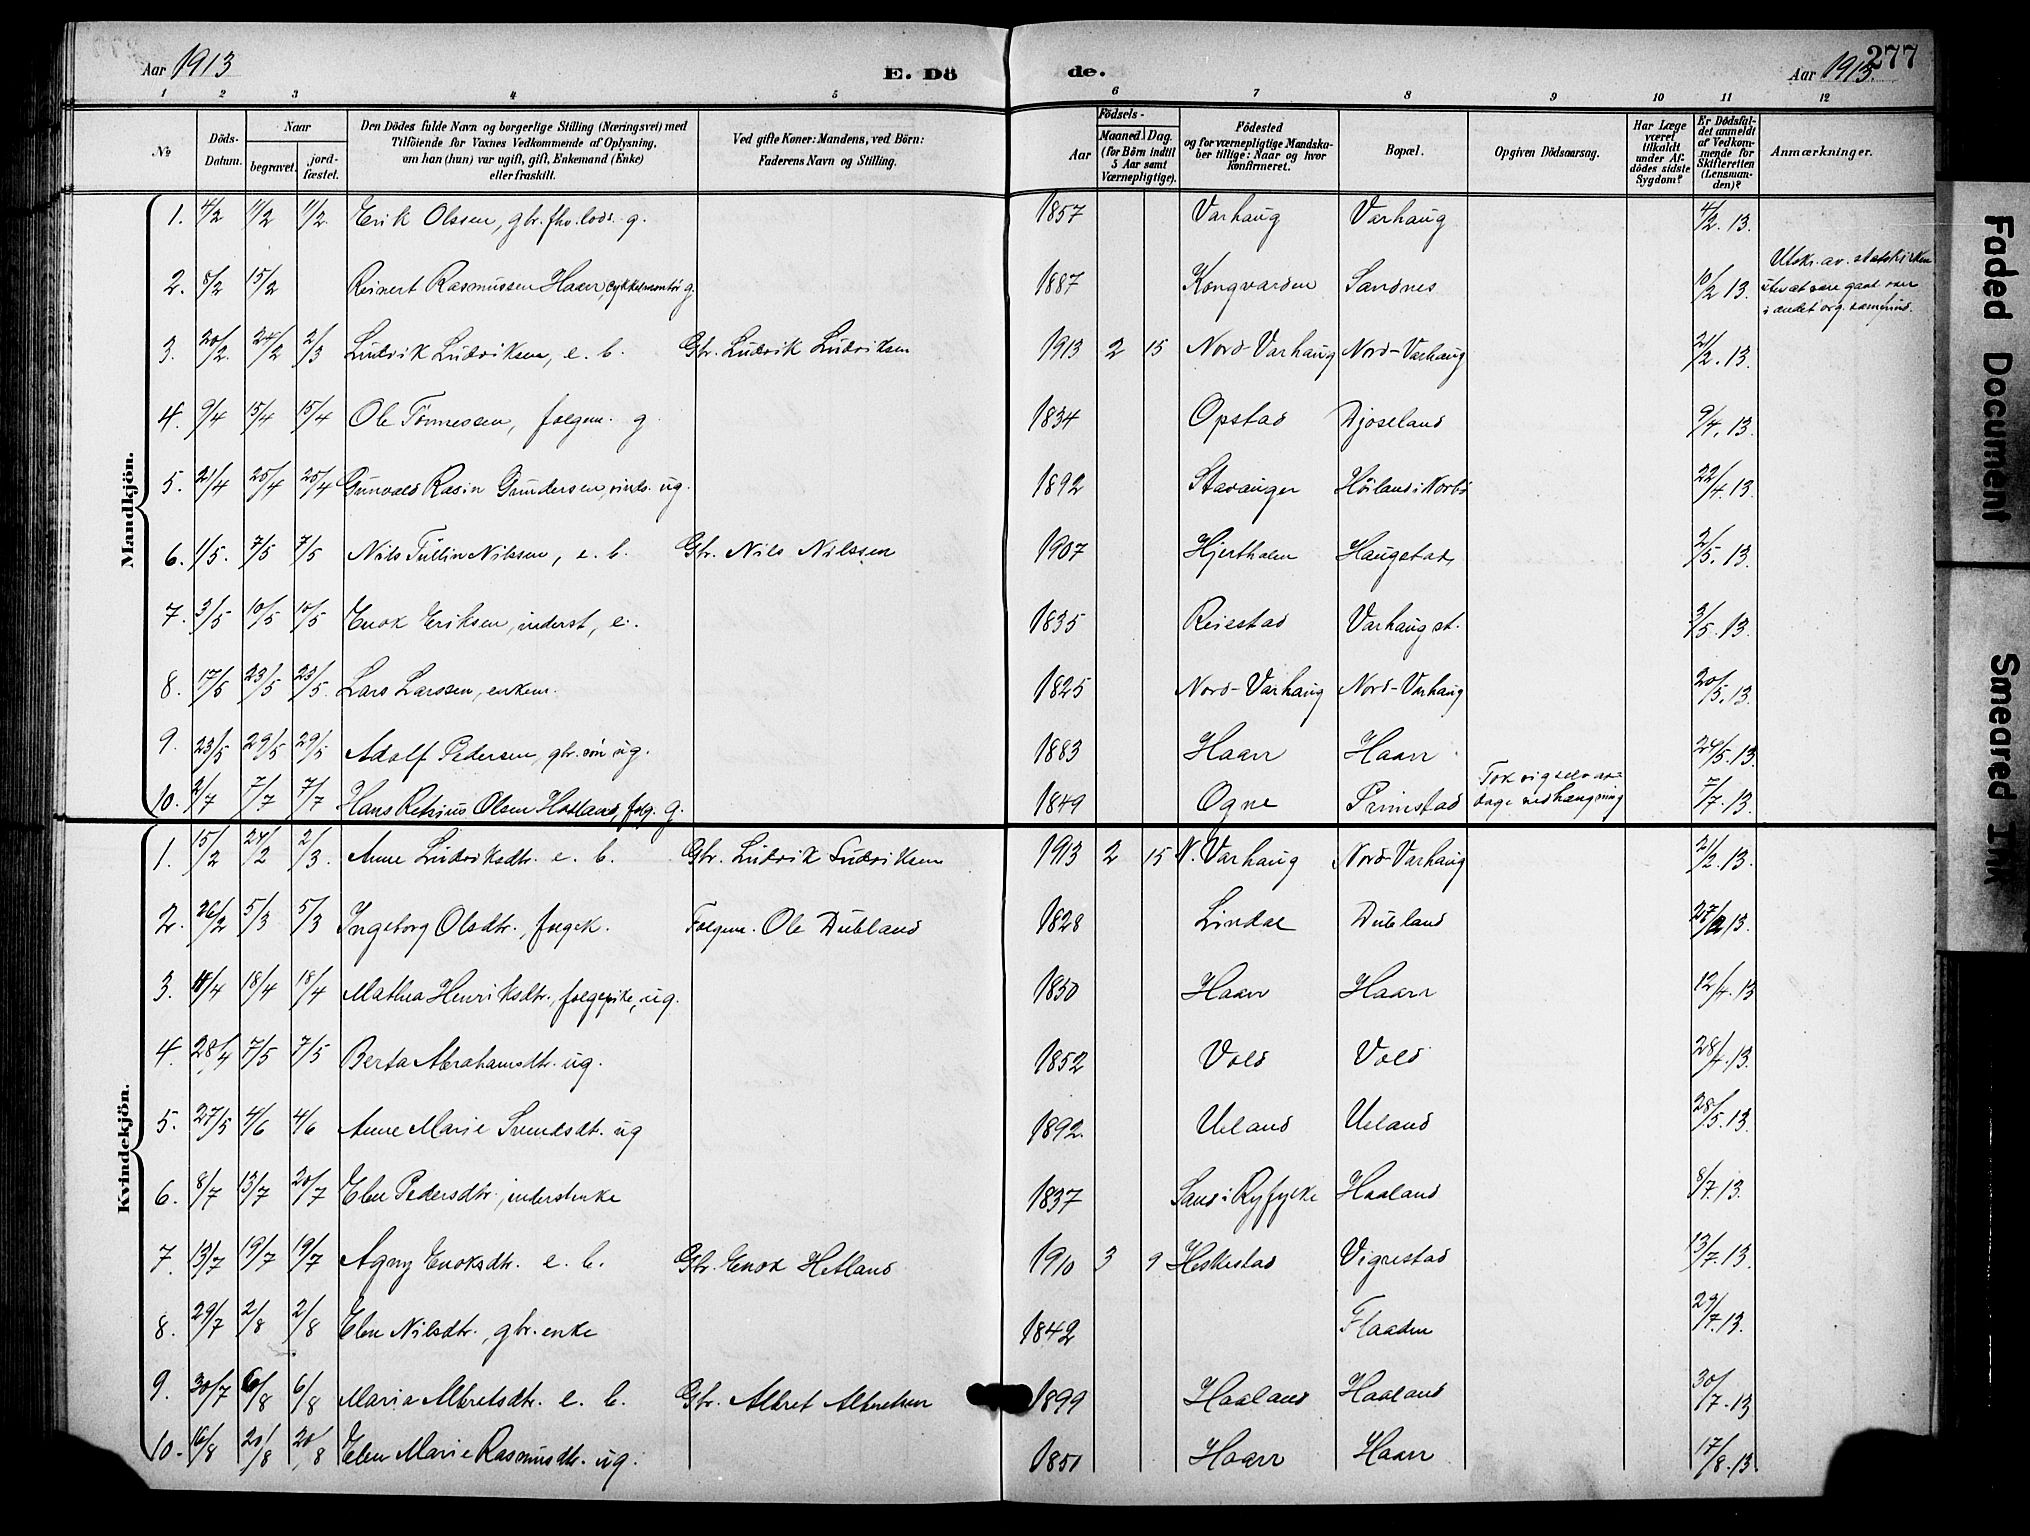 Aar 1913
E. Dö
de.
Aar 1913.
277
1 2 3 4 5 6 7 8 9 10 11 12
No
Döds-Datum.
Naar
begravet.
jord-fæstet.
Den Dödes fulde Navn og borgerlige Stilling (Næringsvei) med
Tilföiende for Voxnes Vedkommende af Oplysning,
om han (hun) var ugift, gift, Enkemand (Enke)
eller fraskilt.
Ved gifte Koner: Mandens, ved Börn:
Faderens Navn og Stilling.
Födsels-
Aar
Maaned. Dag.
(for Börn indtil
5 Aar samt
Værnepligtige).
Födested
og for værnepligtige Mandska-
ber tillige: Naar og hvor
konfirmeret.
Bopæl.
Opgiven Dödsaarsag.
Har Læge
været
tilkaldt
under Af-
dödes sidste
Sygdom?
Er Dödsfal-
det anmeldt
af Vedkom-
mende for
Skifteretten
(Lensman-
den)?
Anmærkninger.
Mandkjön.
1. 4/2 11/2 11/2 Erik Olssen, gbr. fhv. lods. g. 1857 Varhaug Varhaug 4/2. 13.
2. 8/2 15/2 Reinert Rasmussen Haarr, cykkelmontør g. 1887 Kongvarden Sandnes 10/2 13. Utskr. av. statskirken
uten at være gaat over
i andet org. samfund.
3. 20/2. 24/2 2/3 Ludvik Ludviksen, e. b. Gbr. Ludvik Ludviksen 1913 2 15 Nord-Varhaug Nord-Varhaug 21/2. 13.
4. 9/4 15/4 15/4 Ole Tönnessen, folgm. g 1834 Opstad Djöseland 9/4. 13.
5. 21/4 25/4 25/4 Gunvald Rasin Gundersen ug. 1892 Stavanger Höiland i 22/4. 13.
6. 1/5. 7/5 7/5 Nils Tullin Nilssen, e. b. Gbr. Nils Nilssen 1907 Hjertholm Haugstad 2/5. 13.
7. 3/5 10/5 10/5 Enok Eriksen, inderst, e. 1835 Reiestad Varhaug st. 3/5. 13.
8. 17/5 23/5 23/5. Lars Larssen, enkem. 1825 Nord-Varhaug Nord-Varhaug 20/5. 13.
9. 23/5 29/5 29/5 Adolf Pedersen, gbr. sön ug. 1883 Haarr Haarr 24/5. 13.
10. 2/7 7/7 7/7 Hans Retzius Olsen Hotland, folg. g. 1849 Ogne Primstad Tok sig selv av-
dage ved hængning 7/7. 13.
Kvindekjön.
1. 15/2 24/2 2/3. Anne Ludviksdtr. e. b. Gbr. Ludvik Ludviksen 1913 2 15 N. Varhaug Nord-Varhaug 21/2. 13.
2. 26/2 5/3 5/3 Ingeborg Olsdtr., folgek. Folgem. Ole Dubland 1828 Lindal Dubland 27/2 13.
3. 11/4 18/4 18/4 Mathea Henriksdtr., folgepike, ug. 1850 Haarr Haarr 12/4. 13
4. 28/4 7/5 7/5 Berta Abrahamsdtr. ug. 1852 Vold Vold 28/4. 13.
5. 27/5 4/6 4/6 Anne Marie Svendsdt. ug 1892. Ueland Ueland 28/5. 13.
6. 8/7 13/7 20/7 Elen Pedersdtr., inderstenke 1837 Sand i Ryfylke Haaland 8/7. 13.
7. 13/7 19/7 19/7 Agny Enoksdtr. e. b. Gbr. Enok Hetland 1910 3 9 Heskestad Vigrestad 13/7. 13.
8. 29/7 2/8 2/8 Elen Nilsdtr., gbr. enke 1842 Flaaden 29/7. 13.
9. 30/7 6/8 6/8 Maria Albretsdtr. e. b. Gbr. Albret Albretsen 1899 Haaland Haaland 30/7. 13
10. 16/8 20/8 20/8 Elen Marie Rasmusdtr. ug. 1851 Haarr Haarr 17/8. 13.
Faded Document
Smeared Ink